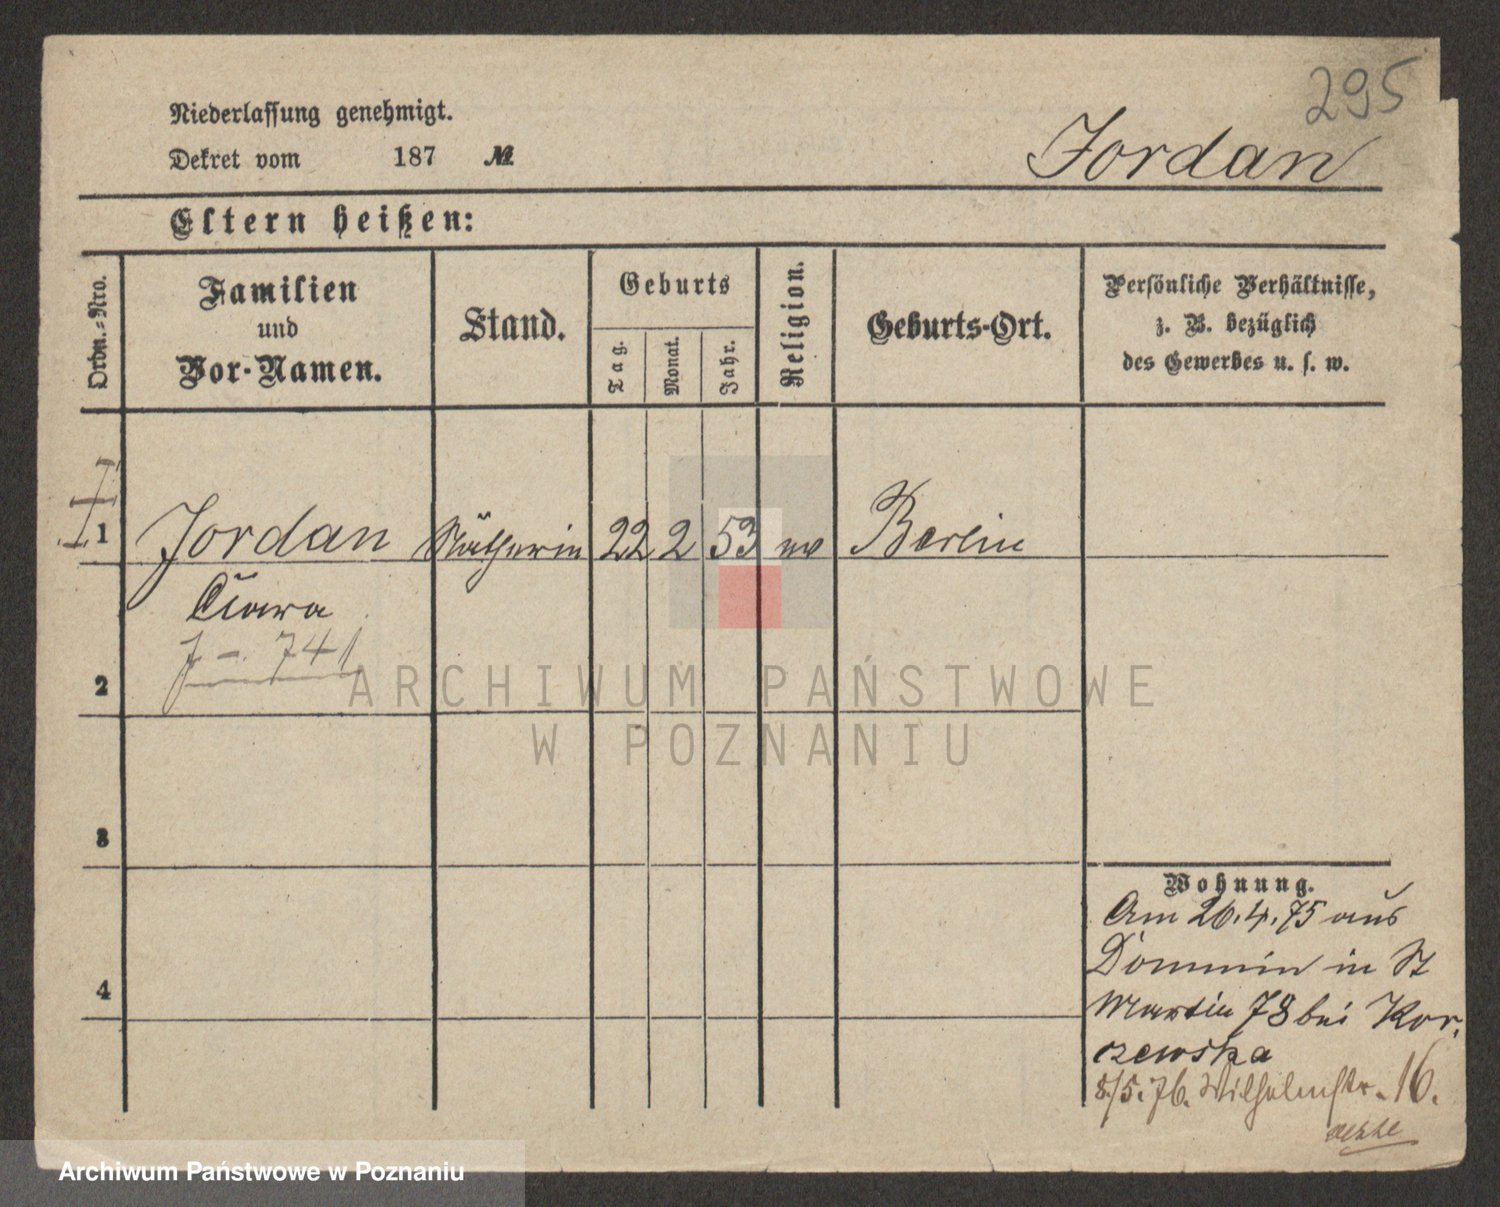 295
Niederlassung genehmigt.
Dekret vom 187 №
Jordan
Eltern heißen:
Ordn.-Nro.
Familien
und
Vor-Namen.
Stand.
Geburts
Tag.
Monat.
Jahr.
Religion.
Geburts-Ort.
Persönliche Verhältnisse,
z. B. bezüglich
des Gewerbes u. s. w.
1 Jordan Nätherin 22 2 53 Berlin
Clara
J – 741
2
3
4
Wohnung.
Am 26.4.75 aus
Dömmin in St
Martin 78 bei Kor-
czewska
8/5.76. Wilhelmstr. 16.
ARCHIWUM PAŃSTWOWE
W POZNANIU
Archiwum Państwowe w Poznaniu